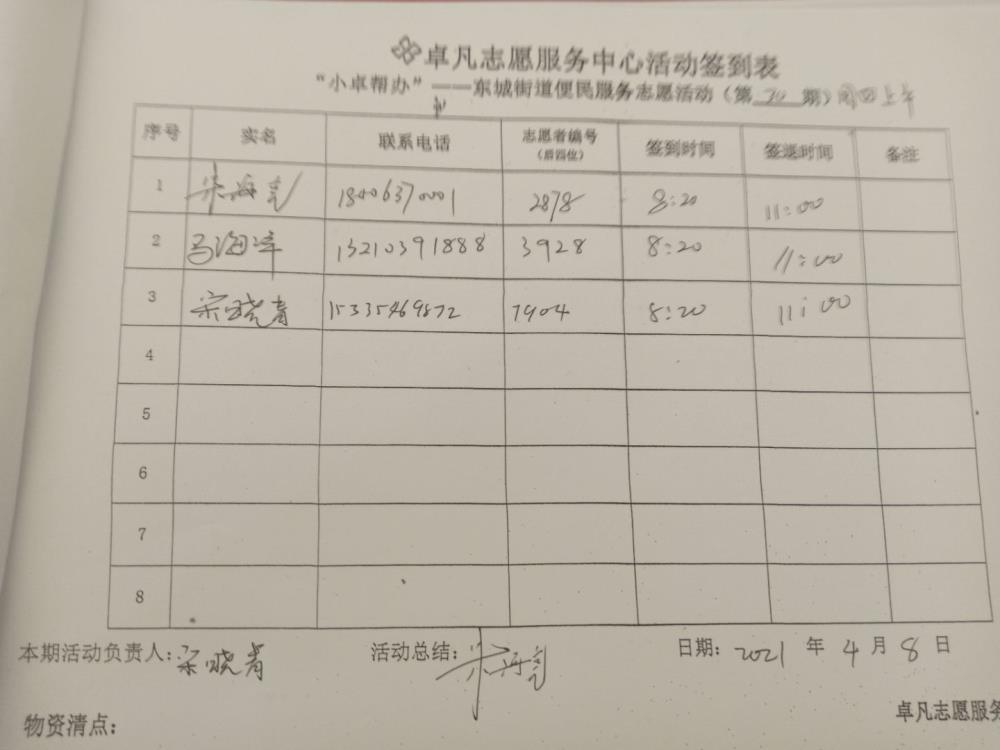 卓凡志愿服务中心活动签到表
“小卓帮办”——东城街道便民服务志愿活动（第 20 期）周四上午
序号 实名 联系电话 志愿者编号（后四位） 签到时间 签退时间 备注
1 2878 8:20 11:00
2 马海洋 13210391888 3928 8:20 11:00
3 宋晓青 15335469872 7904 8:20 11:00
4
5
6
7
8
本期活动负责人：宋晓青 活动总结： 日期：2021 年 4 月 8 日
物资清点：
卓凡志愿服务